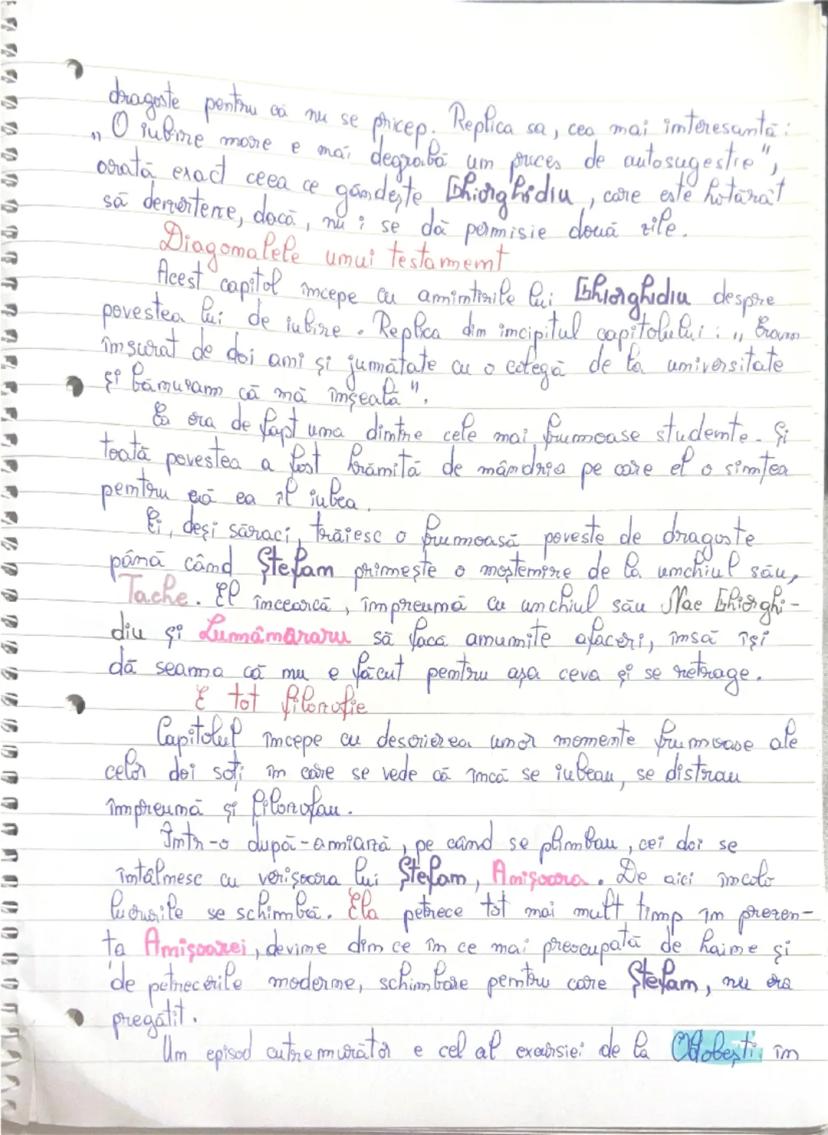 dragoste pentru că nu se pricep. Replica sa, cea mai interesantă:
„O iubire mare e mai degrabă un proces de autosugestie",
arată exact ceea ce gândește Ghiorghidiu, care este hotărât
să dezerteze, dacă, nu i se dă permisie două zile.
Diagonalele unui testament
Acest capitol începe cu amintirile lui Ghiorghidiu despre
povestea lui de iubire. Replica din incipitul capitolului: „Eram
însurat de doi ani și jumătate cu o colegă de la universitate
și bănuiam că mă înșeală".
Ea era de fapt una dintre cele mai frumoase studente. Și
toată povestea a fost hrănită de mândria pe care el o simțea
pentru că ea îl iubea.
Ei, deși săraci, trăiesc o frumoasă poveste de dragoste
până când Ștefan primește o moștenire de la unchiul său,
Tache. El încearcă, împreună cu unchiul său Nae Ghiorghi-
diu și Lumânăraru să facă anumite afaceri, însă își
dă seama că nu e făcut pentru așa ceva și se retrage.
E tot filozofie
Capitolul începe cu descrierea unor momente frumoase ale
celor doi soți în care se vede că încă se iubeau, se distrau
împreună și filozofau.
Într-o după-amiază, pe când se plimbau, cei doi se
întâlnesc cu verișoara lui Ștefan, Anișoara. De aici încolo
lucrurile se schimbă. Ela petrece tot mai mult timp în prezen-
ța Anișoarei, devine din ce în ce mai preocupată de haine și
de petrecerile moderne, schimbare pentru care Ștefan, nu era
pregătit.
Un episod cutremurător e cel al excursiei de la Odobești în